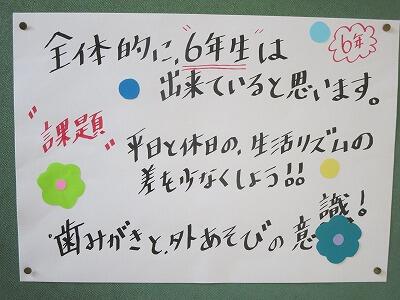 全体的に、"6年生"は
6年
出来ていると思います。
"課題"
平日と休日の、生活リズムの
差を少なくしよう!!
・歯みがきと、外あそびの意識!